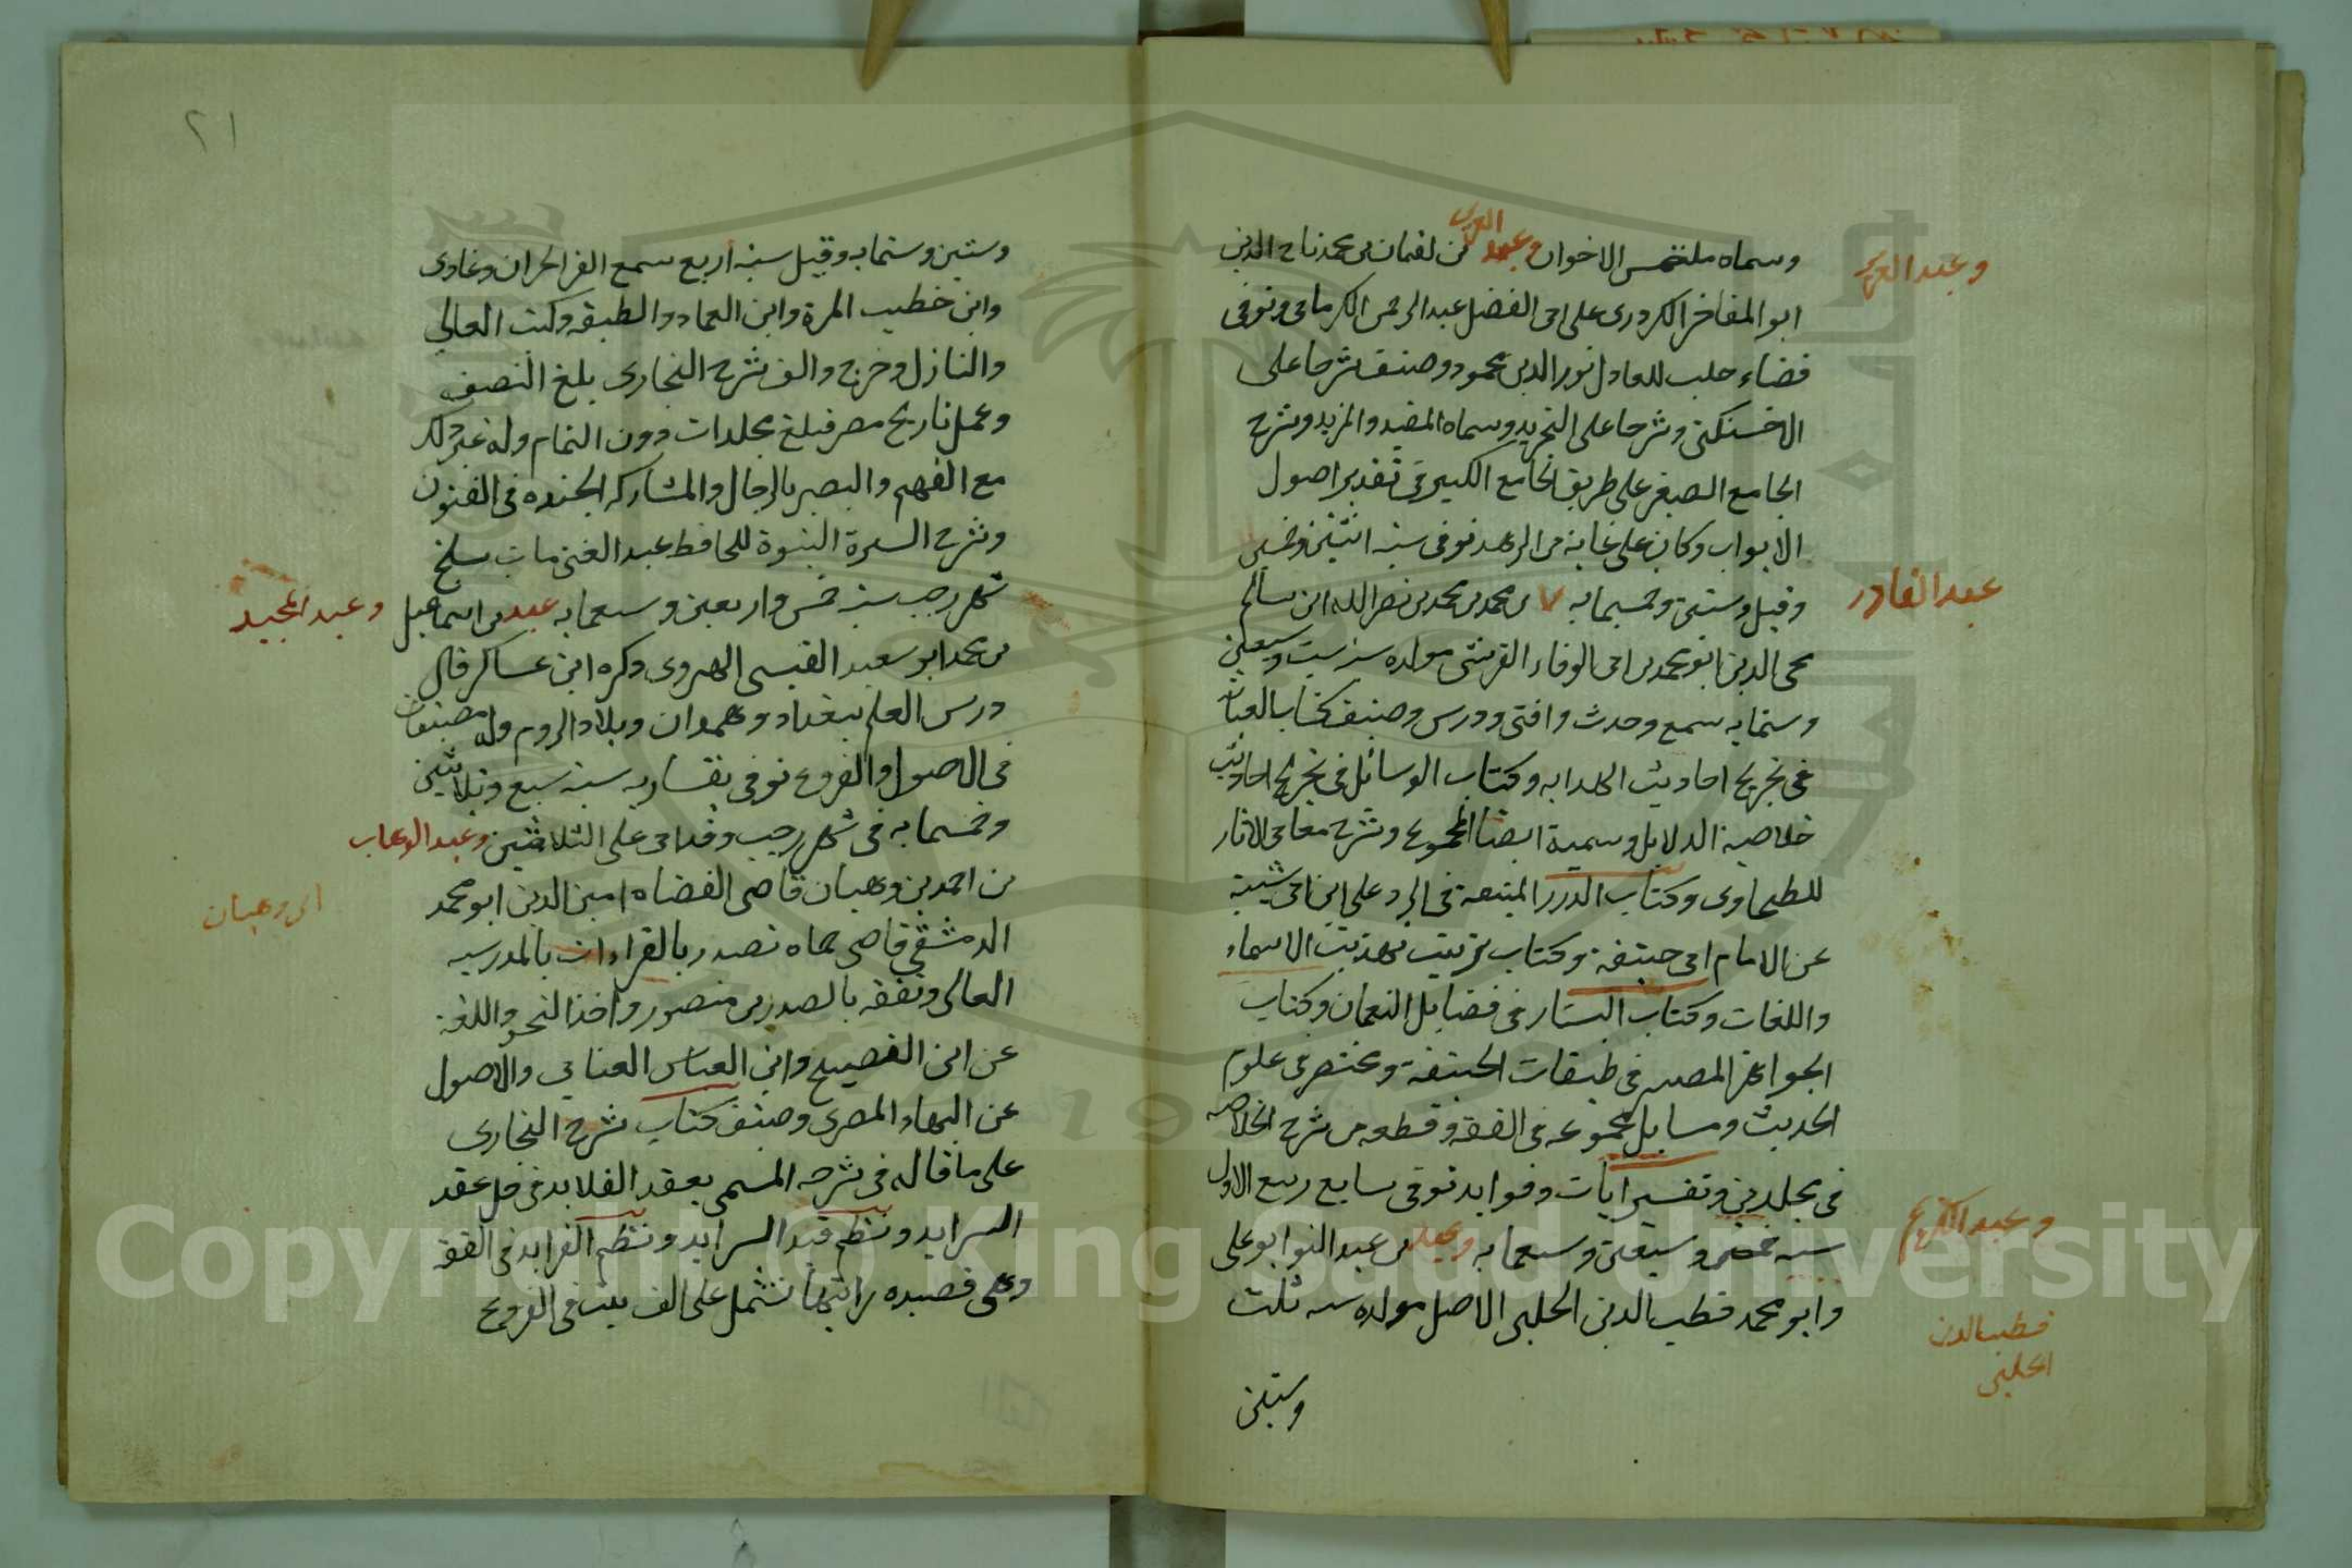 وسماه ملتمس الاخوان وعبد العزيز بن لقمان بن محمد تاج الدين
وعبد العزيز
ابو المفاخر الكردرى على ابى الفضل عبد الرحمن الكرمانى وتوفى
قضاء حلب للعادل نور الدين محمود وصنف شرحا على
الاخسيكتى وشرحا على التجريد وسماه المفيد والمزيد وشرح
الجامع الصغير على طريق الجامع الكبير فى تقدير اصول
الابواب وكان على غاية من الزهد توفى سنة اثنتين وخمسين
وقيل وستين وخمسمايه بن محمد بن محمد بن نصر الله ابن سالم
عبد القادر
محى الدين ابو محمد بن ابى الوفاء القرشى مولده سنة ست وسبعين
وستمايه سمع وحدث وافتى ودرس وصنف كتاب العناية
فى تخريج احاديث الهدايه وكتاب الوسائل فى تخريج احاديث
خلاصة الدلايل وسمية ايضا المجموع وشرح معانى الاثار
للطحاوى وكتاب الدرر المنيعة فى الرد على ابن ابى شيبة
عن الامام ابى حنيفة وكتاب ترتيب تهذيب الاسماء
واللغات وكتاب البستان فى فضايل النعمان وكتاب
الجواهر المضيه فى طبقات الحنيفة ومختصر فى علوم
الحديث ومسايل مجموعه فى الفقه وقطعه من شرح الخلاصه
فى مجلدين وتفسير ايات وفوايد توفى سابع ربيع الاول
سنه خمس وسبعين وسبعمايه وعبد بن عبد النور ابو على
وعبد الكريم
وابو محمد قطب الدين الحلبى الاصل مولده سنه ثلث
قطب الدين
الحلبى
وستين
٢١
وستين وستمايه وقيل سنة أربع سمع العز الحرانى وغازى
وابن خطيب المزة وابن العماد والطبقه وكتب العالي
والنازل وخرج والف شرح البخارى بلغ النصف
وعمل تاريخ مصر فبلغ مجلدات دون التمام وله غير ذلك
مع الفهم والبصر بالرجال والمشاركه الجيده فى الفنون
وشرح السيرة النبوة للحافظ عبد الغنى مات سلخ
شهر رجب سنة خمس واربعين وسبعمايه عبد بن اسماعيل
وعبد المجيد
بن محمد ابو سعيد القيسى الهروى ذكره ابن عساكر قال
درس العلم ببغداد وهمدان وبلاد الروم وله مصنفات
فى الاصول والفروع توفى بقساريه سنة سبع وثلاثين
وخمسمايه فى شهر رجب وقد اربى على الثلاثين وعبد الوهاب
بن احمد بن وهبان قاضى القضاه امين الدين ابو محمد
ابن وهبان
الدمشقي قاضى حماه تصدر بالقراءات بالمدرسه
العالى وتفقه بالصدر بن منصور واخذ النحو واللغة
عن ابن الفصيح وابن العباس العنابي والاصول
عن البهاء المصرى وصنف كتاب شرح البخارى
على ما قاله فى شرحه المسمى بعقد القلايد فى حل عقد
السرايد ونظم قيد السرايد ونظم الفرايد فى الفقه
وهى قصيده رايتها تشتمل على الف بيت فى الفروع
Copyright © King Saud University